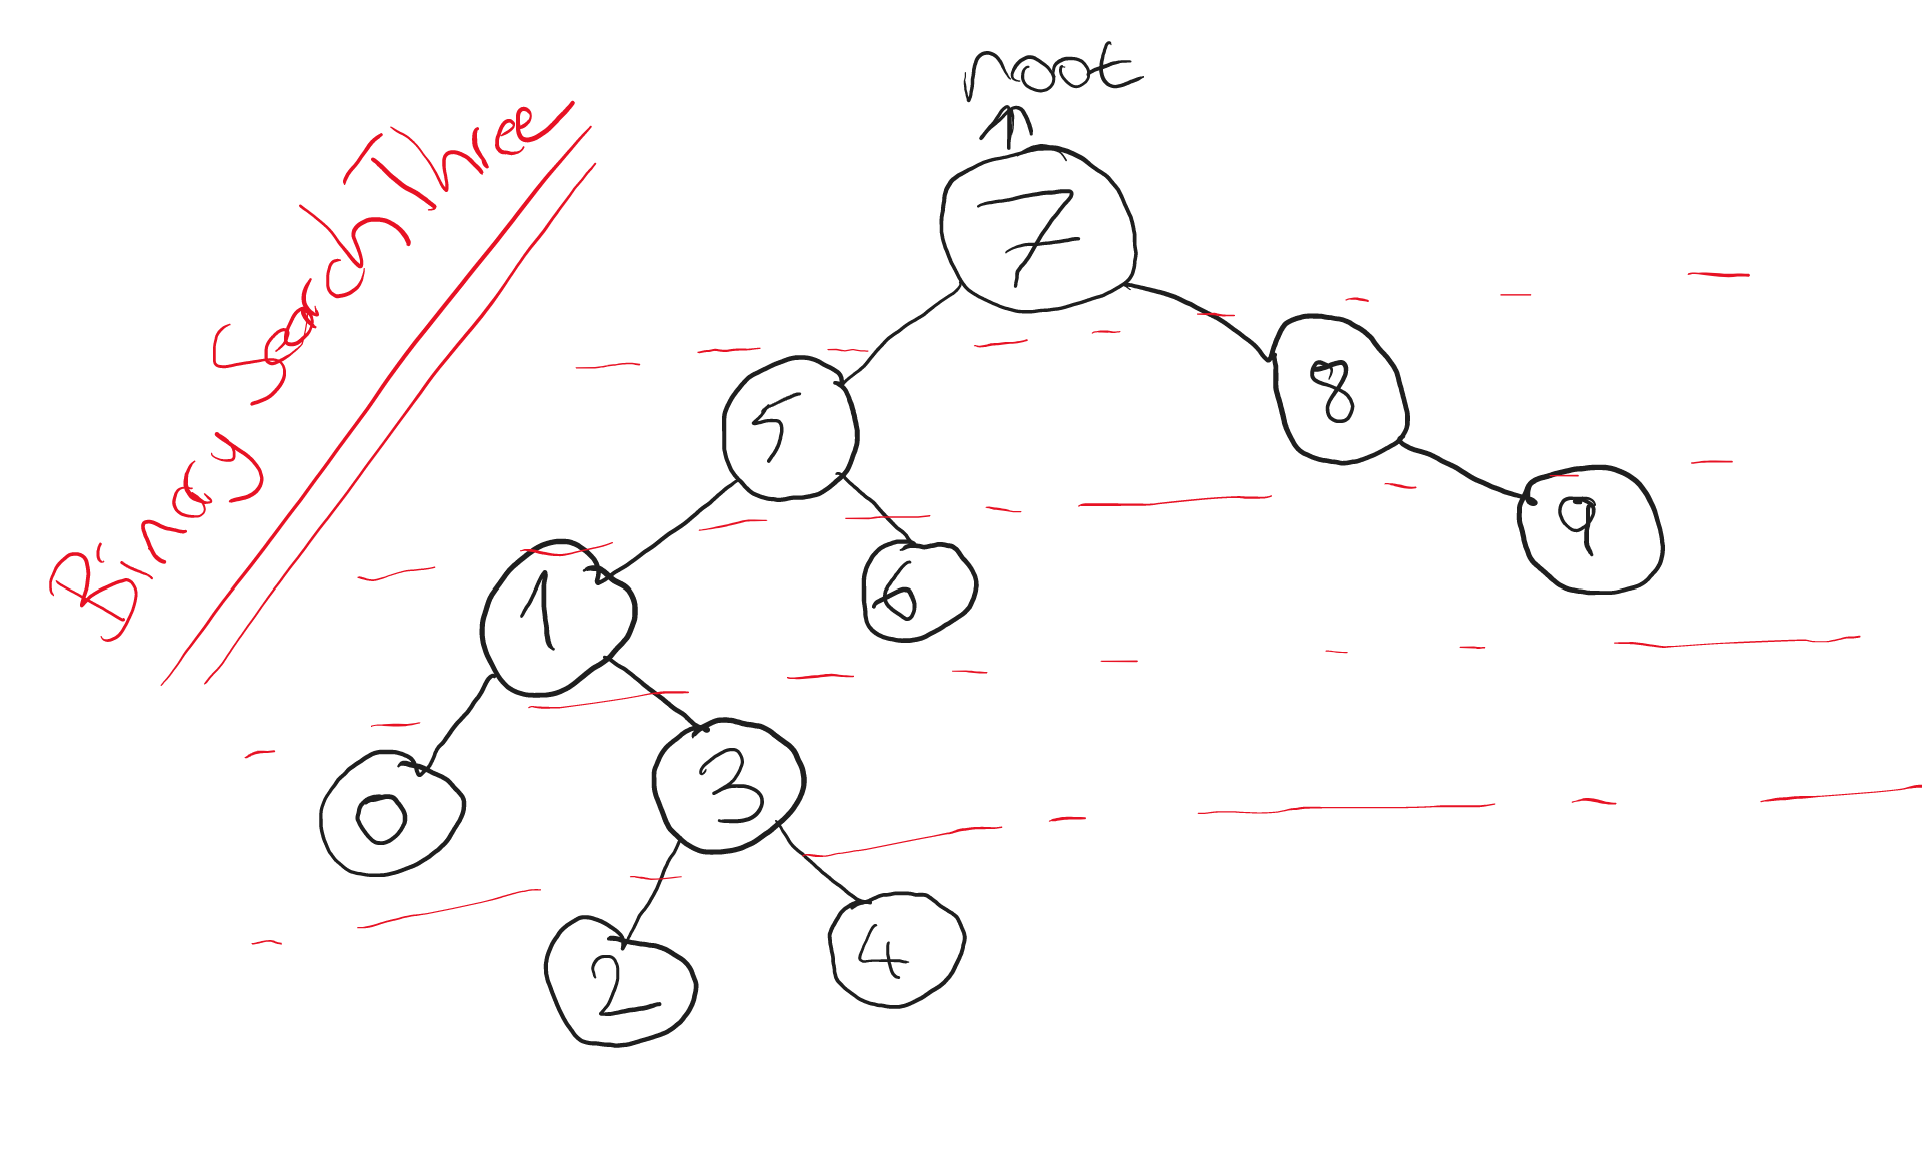 Binary Search Three
root
7
5
8
1
6
9
0
3
2
4